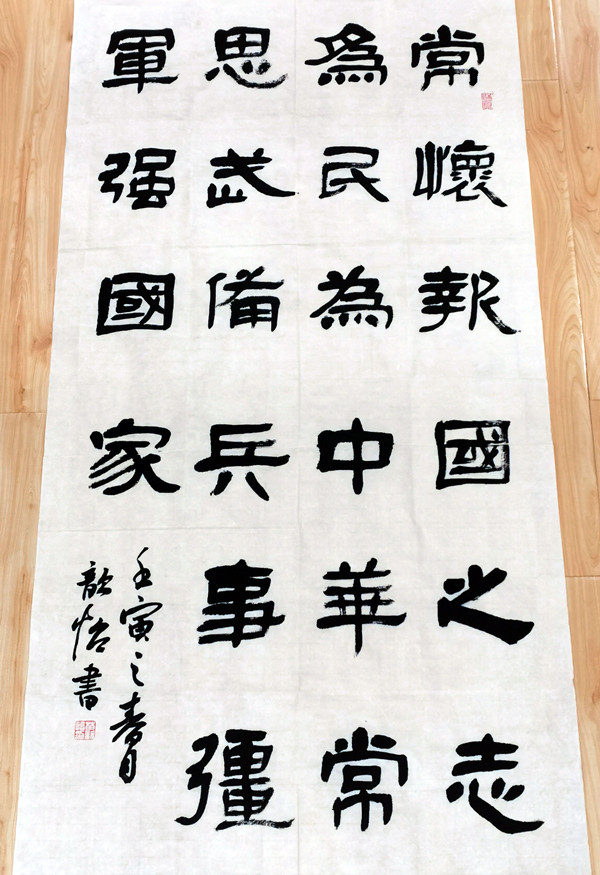 常懷報國之志
為民為中華常
思武備兵事彊
軍强國家
壬寅之春月
歆悟書